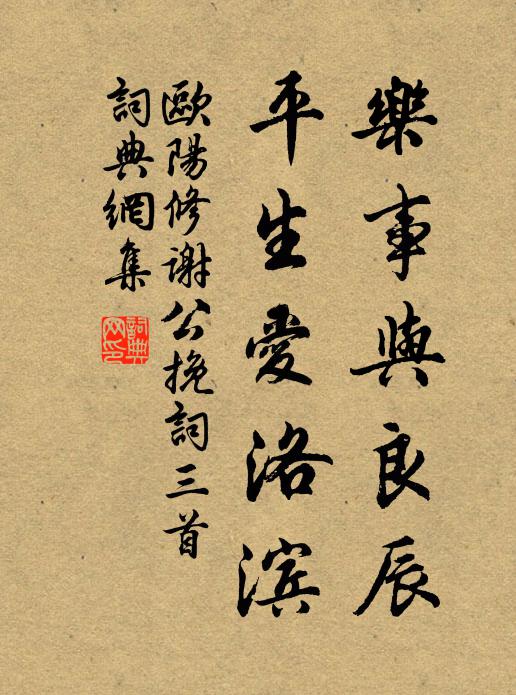 樂事與良辰
平生愛洛滨
歐陽修謝公挽詞三首
詞典網集
詞典
网印